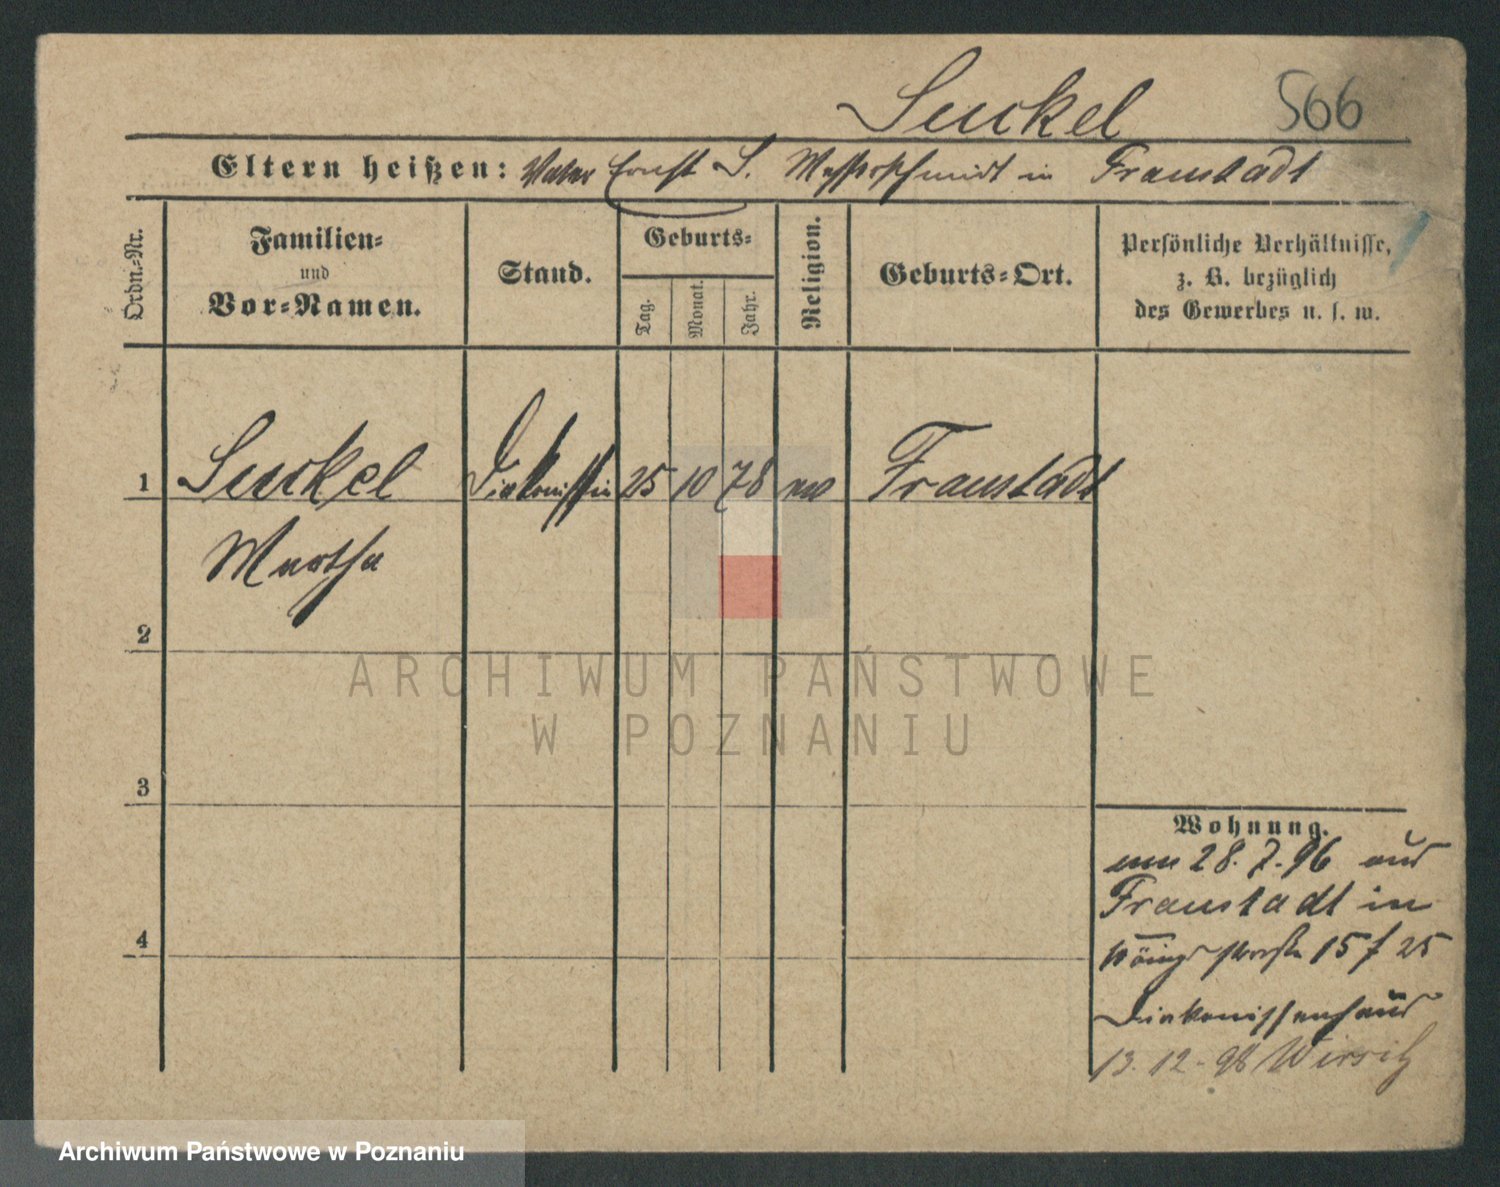 Suckel 566
Eltern heißen: Vater Ernst S. Messerschmidt in Fraustadt
Ordn.-Nr.
Familien-
und
Vor-Namen.
Stand.
Geburts-
Tag.
Monat.
Jahr.
Religion.
Geburts-Ort.
Persönliche Verhältnisse,
z. B. bezüglich
des Gewerbes u. s. w.
1 Suckel Diakonissin 25 10 78 ev Fraustadt
Martha
2
ARCHIWUM PAŃSTWOWE
W POZNANIU
3
Wohnung.
am 28. 7. 96 aus
Fraustadt in
Königstraße 15 f 25
Diakonissenhaus
13. 12. 98 Wirsitz
4
Archiwum Państwowe w Poznaniu